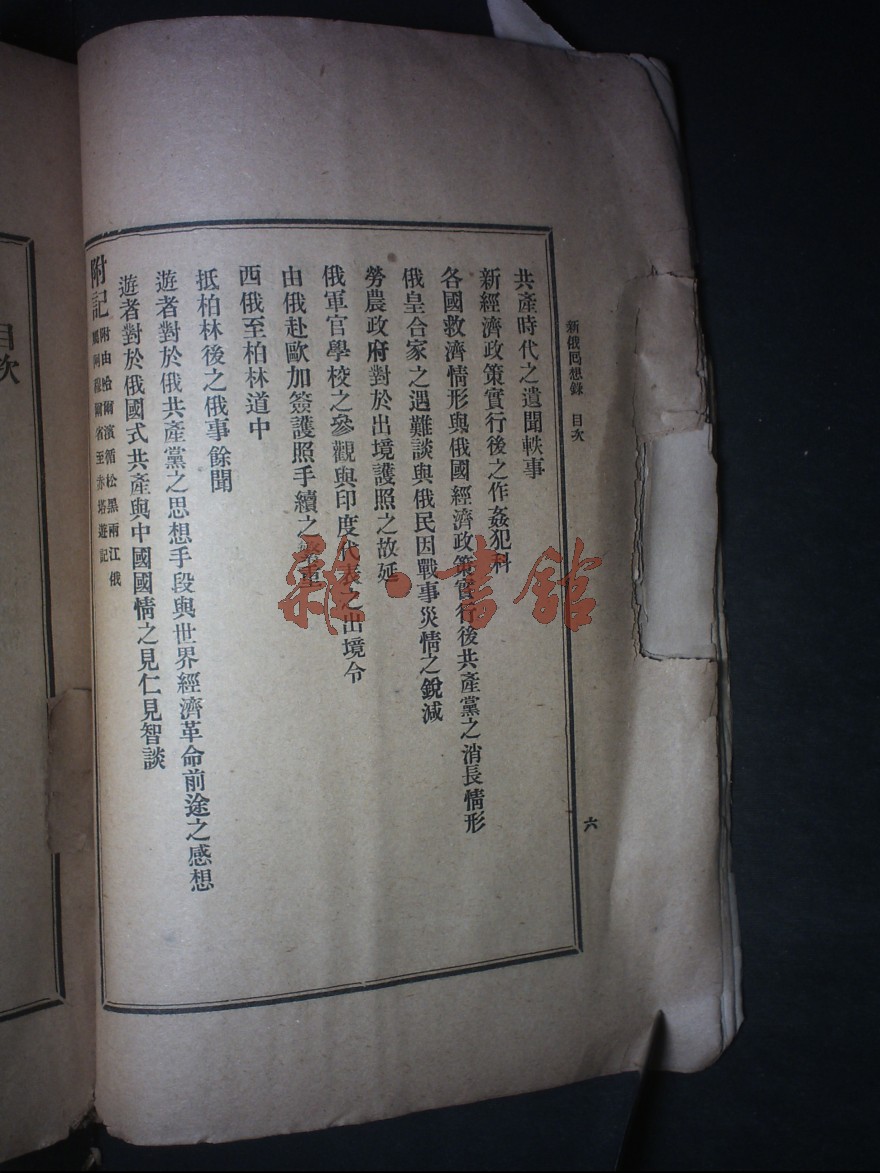 新俄囘想錄　目次
六
共產時代之遺聞軼事
新經濟政策實行後之作姦犯科
各國救濟情形與俄國經濟政策實行後共產黨之消長情形
俄皇合家之遇難談與俄民因戰事災情之銳減
勞農政府對於出境護照之故延
俄軍官學校之參觀與印度代表之出境令
由俄赴歐加簽護照手續之繁重
西俄至柏林道中
抵柏林後之俄事餘聞
遊者對於俄共產黨之思想手段與世界經濟革命前途之感想
遊者對於俄國式共產與中國國情之見仁見智談
附記
附由哈爾濱循松黑兩江俄
阿穆爾省至赤塔遊記
目次
雜·書館